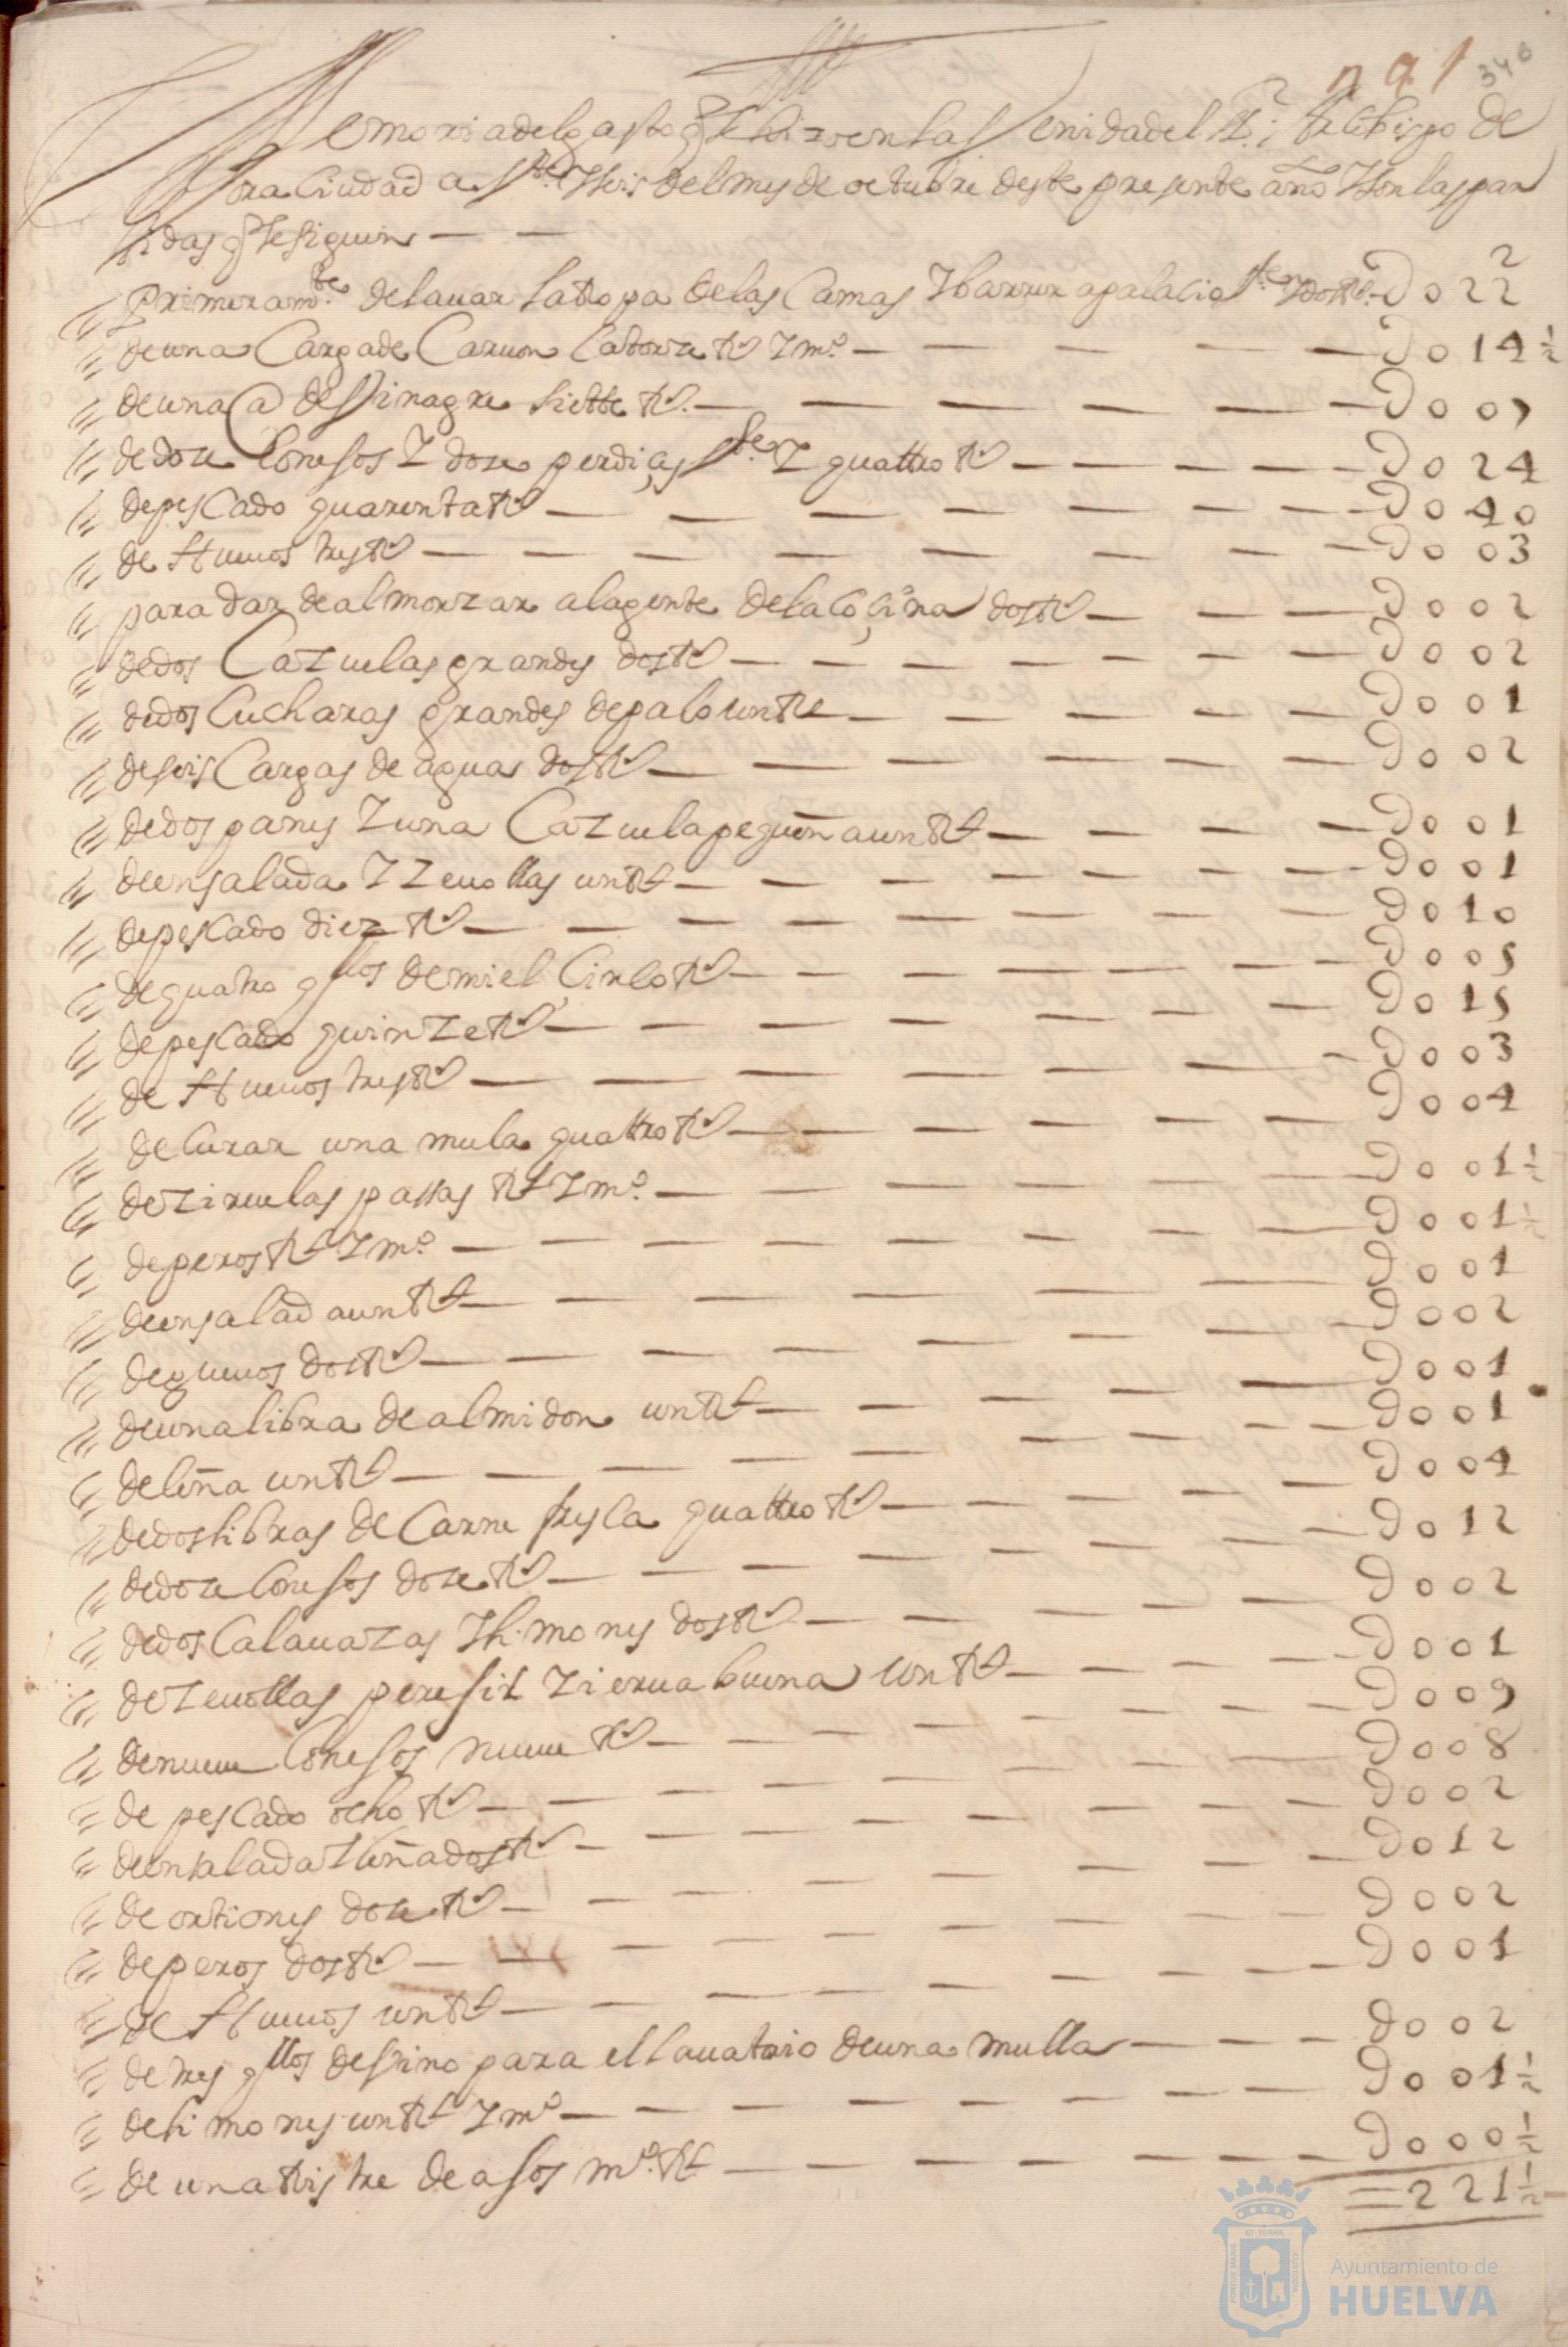 n 9 1 340
Memoria del gasto q̃ se hizo en la Venida del Sr. Arobispo de
esta Ciudad a Vte y seis del mes de octubre deste presente año y son las par
tidas q̃ se siguen — —
primeramte. de lauar la Ropa de las Camas y barrer a palacio Vte y dos Rs. — D 0 22
de una Carga de Caruon Catorze Rs y mo. — D 0 14 ½
de una @ de Vinagre siette Rs. — D 0 07
de doze Conejos y doze perdiçes Vte. y quattro Rs — D 0 24
de pescado quarenta Rs — D 0 40
de Hueuos tres Rs — D 0 03
para dar de almorzar a la gente de la coçina dos Rs — D 0 02
de dos Cazuelas grandes dos Rs — D 0 02
de dos Cucharas grandes de palo un Rl — D 0 01
de seis Cargas de agua dos Rs — D 0 02
de dos panes y una Cazuela pequeña un Rl — D 0 01
de ensalada y zeuollas un Rl — D 0 01
de pescado diez Rs — D 0 10
de quatro qllos de miel Cinco Rs — D 0 05
de pescado quinze Rs — D 0 15
de Hueuos tres Rs — D 0 03
de Curar una mula quattro Rs — D 0 04
de ziruelas passas Rl y mo. — D 0 01 ½
de peros Rl y mo. — D 0 01 ½
de ensalada un Rl — D 0 01
de gueuos dos Rs — D 0 02
de una libra de almidon un Rl — D 0 01
de leña un Rl — D 0 01
de dos libras de Carne fresca quattro Rs — D 0 04
de doze Conejos doze Rs — D 0 12
de dos Calauazas y limones dos Rs — D 0 02
de zeuollas peresil y ieruabuena un Rl — D 0 01
de nueue Conejos nueue Rs — D 0 09
de pescado ocho Rs — D 0 08
de ensalada y leña dos Rs — D 0 02
de ortiones doze Rs — D 0 12
de peros dos Rs — D 0 02
de Hueuos un Rl — D 0 01
de tres qllos de vino para el lauatorio de una mulla — D 0 02
de limones un Rl y mo — D 0 01 ½
de una Ristre de ajos mo. Rl — D 0 00 ½
= 221 ½
Ayuntamiento de
HUELVA